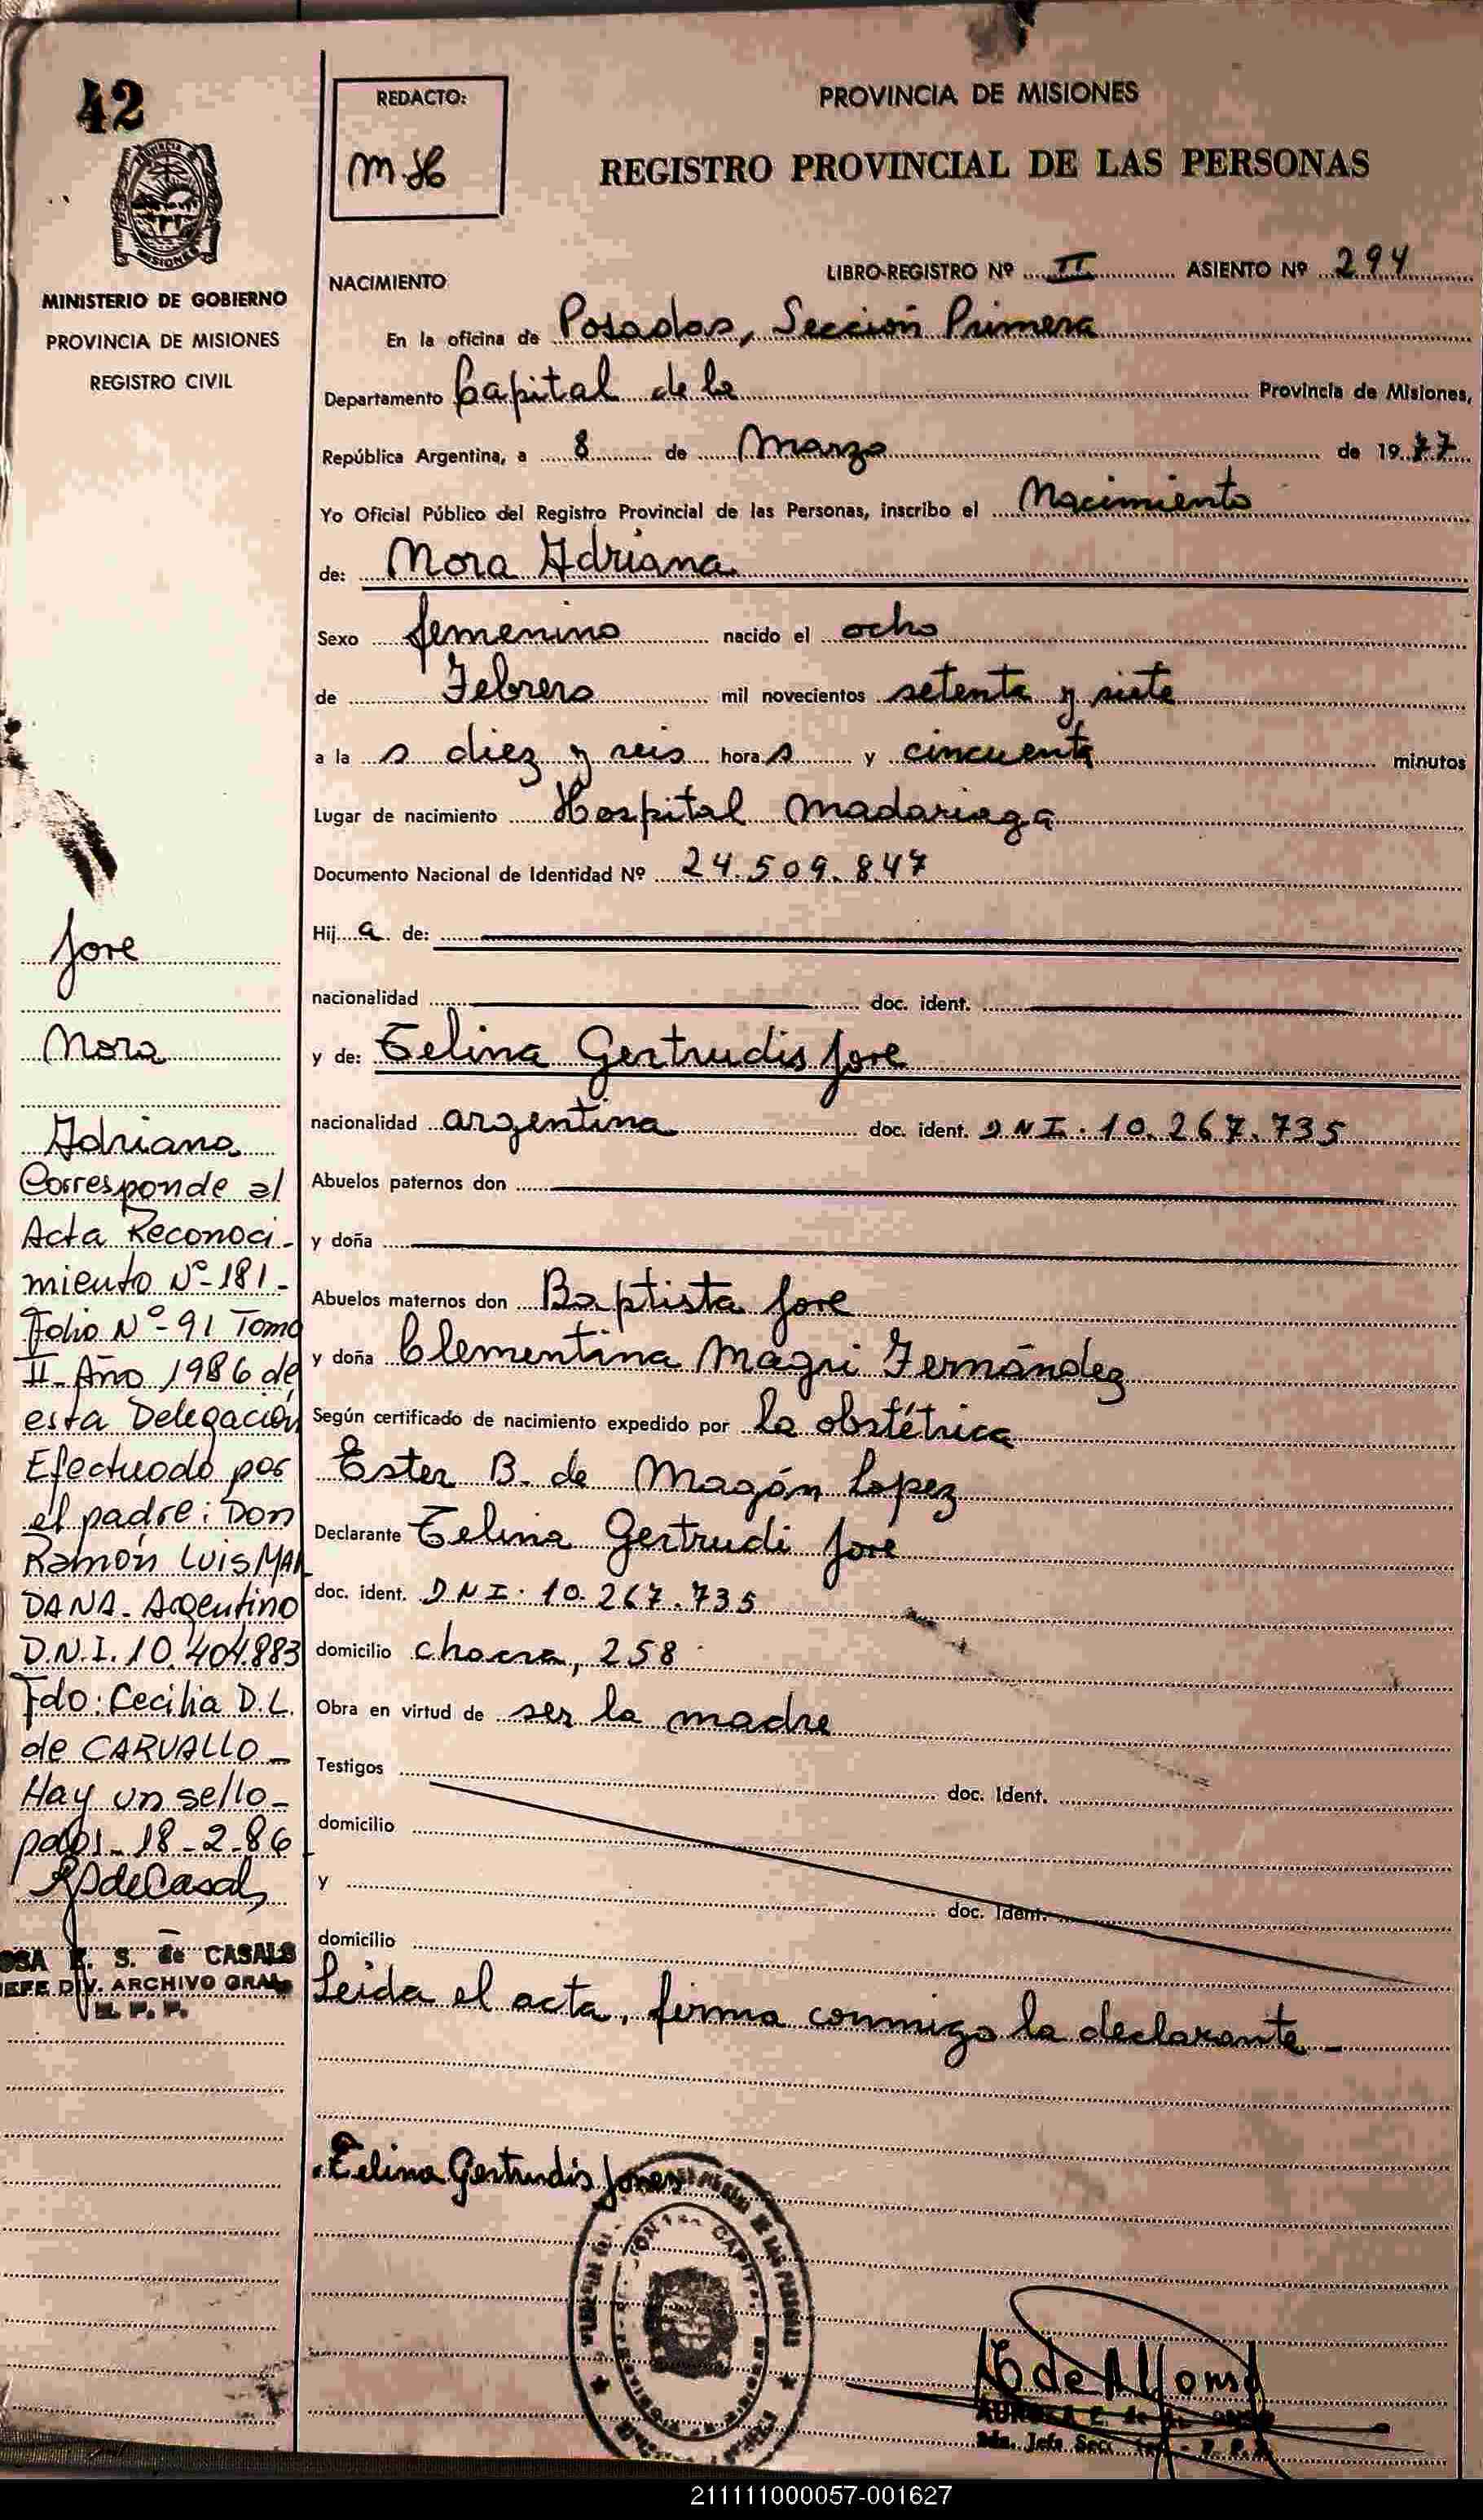 42
MINISTERIO DE GOBIERNO
PROVINCIA DE MISIONES
REGISTRO CIVIL
REDACTO:
PROVINCIA DE MISIONES
REGISTRO PROVINCIAL DE LAS PERSONAS
NACIMIENTO
LIBRO-REGISTRO Nº II ASIENTO Nº 294
En la oficina de Posadas, Sección Primera
Departamento Capital de la Provincia de Misiones,
República Argentina, a 8 de Marzo de 1977
Yo Oficial Público del Registro Provincial de las Personas, inscribo el Nacimiento
de: Nora Adriana
Sexo femenino nacido el ocho
de Febrero mil novecientos setenta y siete
a la s diez y seis hora s y cincuenta minutos
Lugar de nacimiento Hospital Madariaga
Documento Nacional de Identidad Nº 24.509.847
Hij a de:
nacionalidad doc. ident.
y de: Celina Gertrudis Jore
nacionalidad argentina doc. ident. DNI. 10.267.735
Abuelos paternos don
y doña
Abuelos maternos don Baptista Jore
y doña Clementina Magri Fernández
Según certificado de nacimiento expedido por la obstétrica
Ester B. de Magón Lopez
Declarante Celina Gertrudi Jore
doc. ident. DNI. 10.267.735
domicilio chacra, 258
Obra en virtud de ser la madre
Testigos doc. Ident.
domicilio
y doc. Ident.
domicilio
Leida el acta, firma conmigo la declarante -
Celina Gertrudis Jores
Jore
Nora
Adriana
Corresponde al
Acta Reconoci-
miento Nº-181-
Folio Nº-91 Tomo
II-Año 1986 de
esta Delegación
Efectuado por
el padre: Don
Ramón Luis MAL
DANA- Argentino
D.N.I. 10.404.883
Fdo: Cecilia D.L.
de CARVALLO-
Hay un sello-
18-2-86
S. de CASALS
ARCHIVO GRAL
211111000057-001627